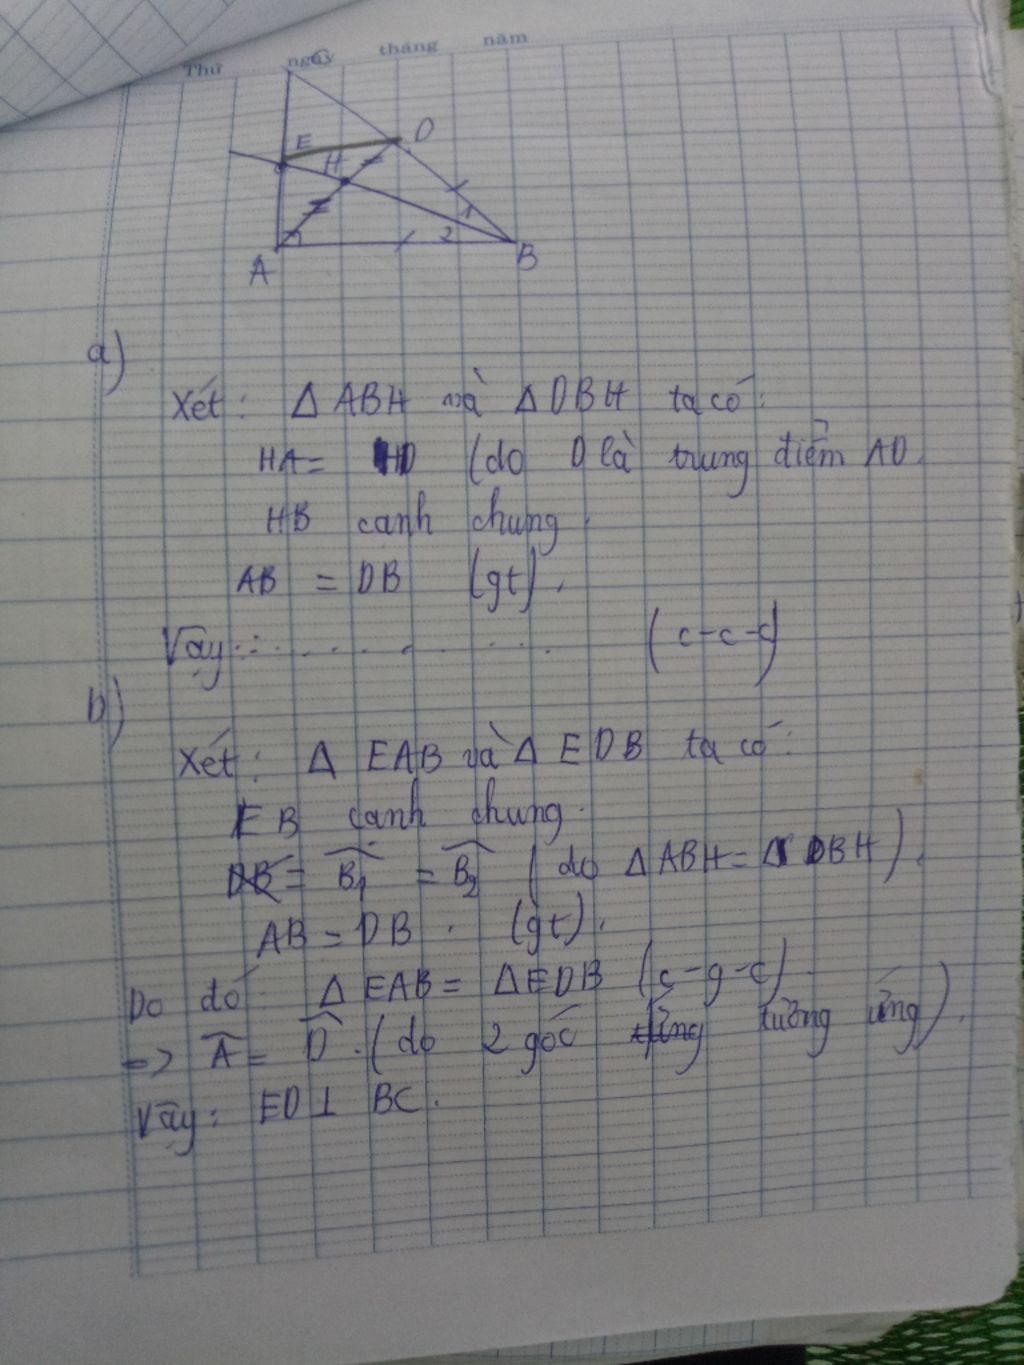 Thứ ngày tháng năm
E D
H
1
2
A B
a)
Xét: Δ ABH và Δ DBH ta có:
HA = HD (do D là trung điểm AD
HB cạnh chung.
AB = DB (gt).
Vậy: . . . . . . . (c-c-c)
b)
Xét: Δ EAB và Δ EDB ta có:
EB cạnh chung.
DB = B̂1 = B̂2 (do Δ ABH = Δ DBH).
AB = DB. (gt).
Do đó Δ EAB = Δ EDB (c-g-c)
=> Â = D̂. (do 2 góc tương ứng).
Vậy: ED ⊥ BC.